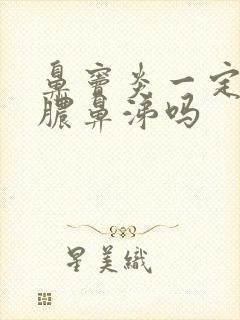 鼻窦炎一定
脓鼻涕吗
星美織